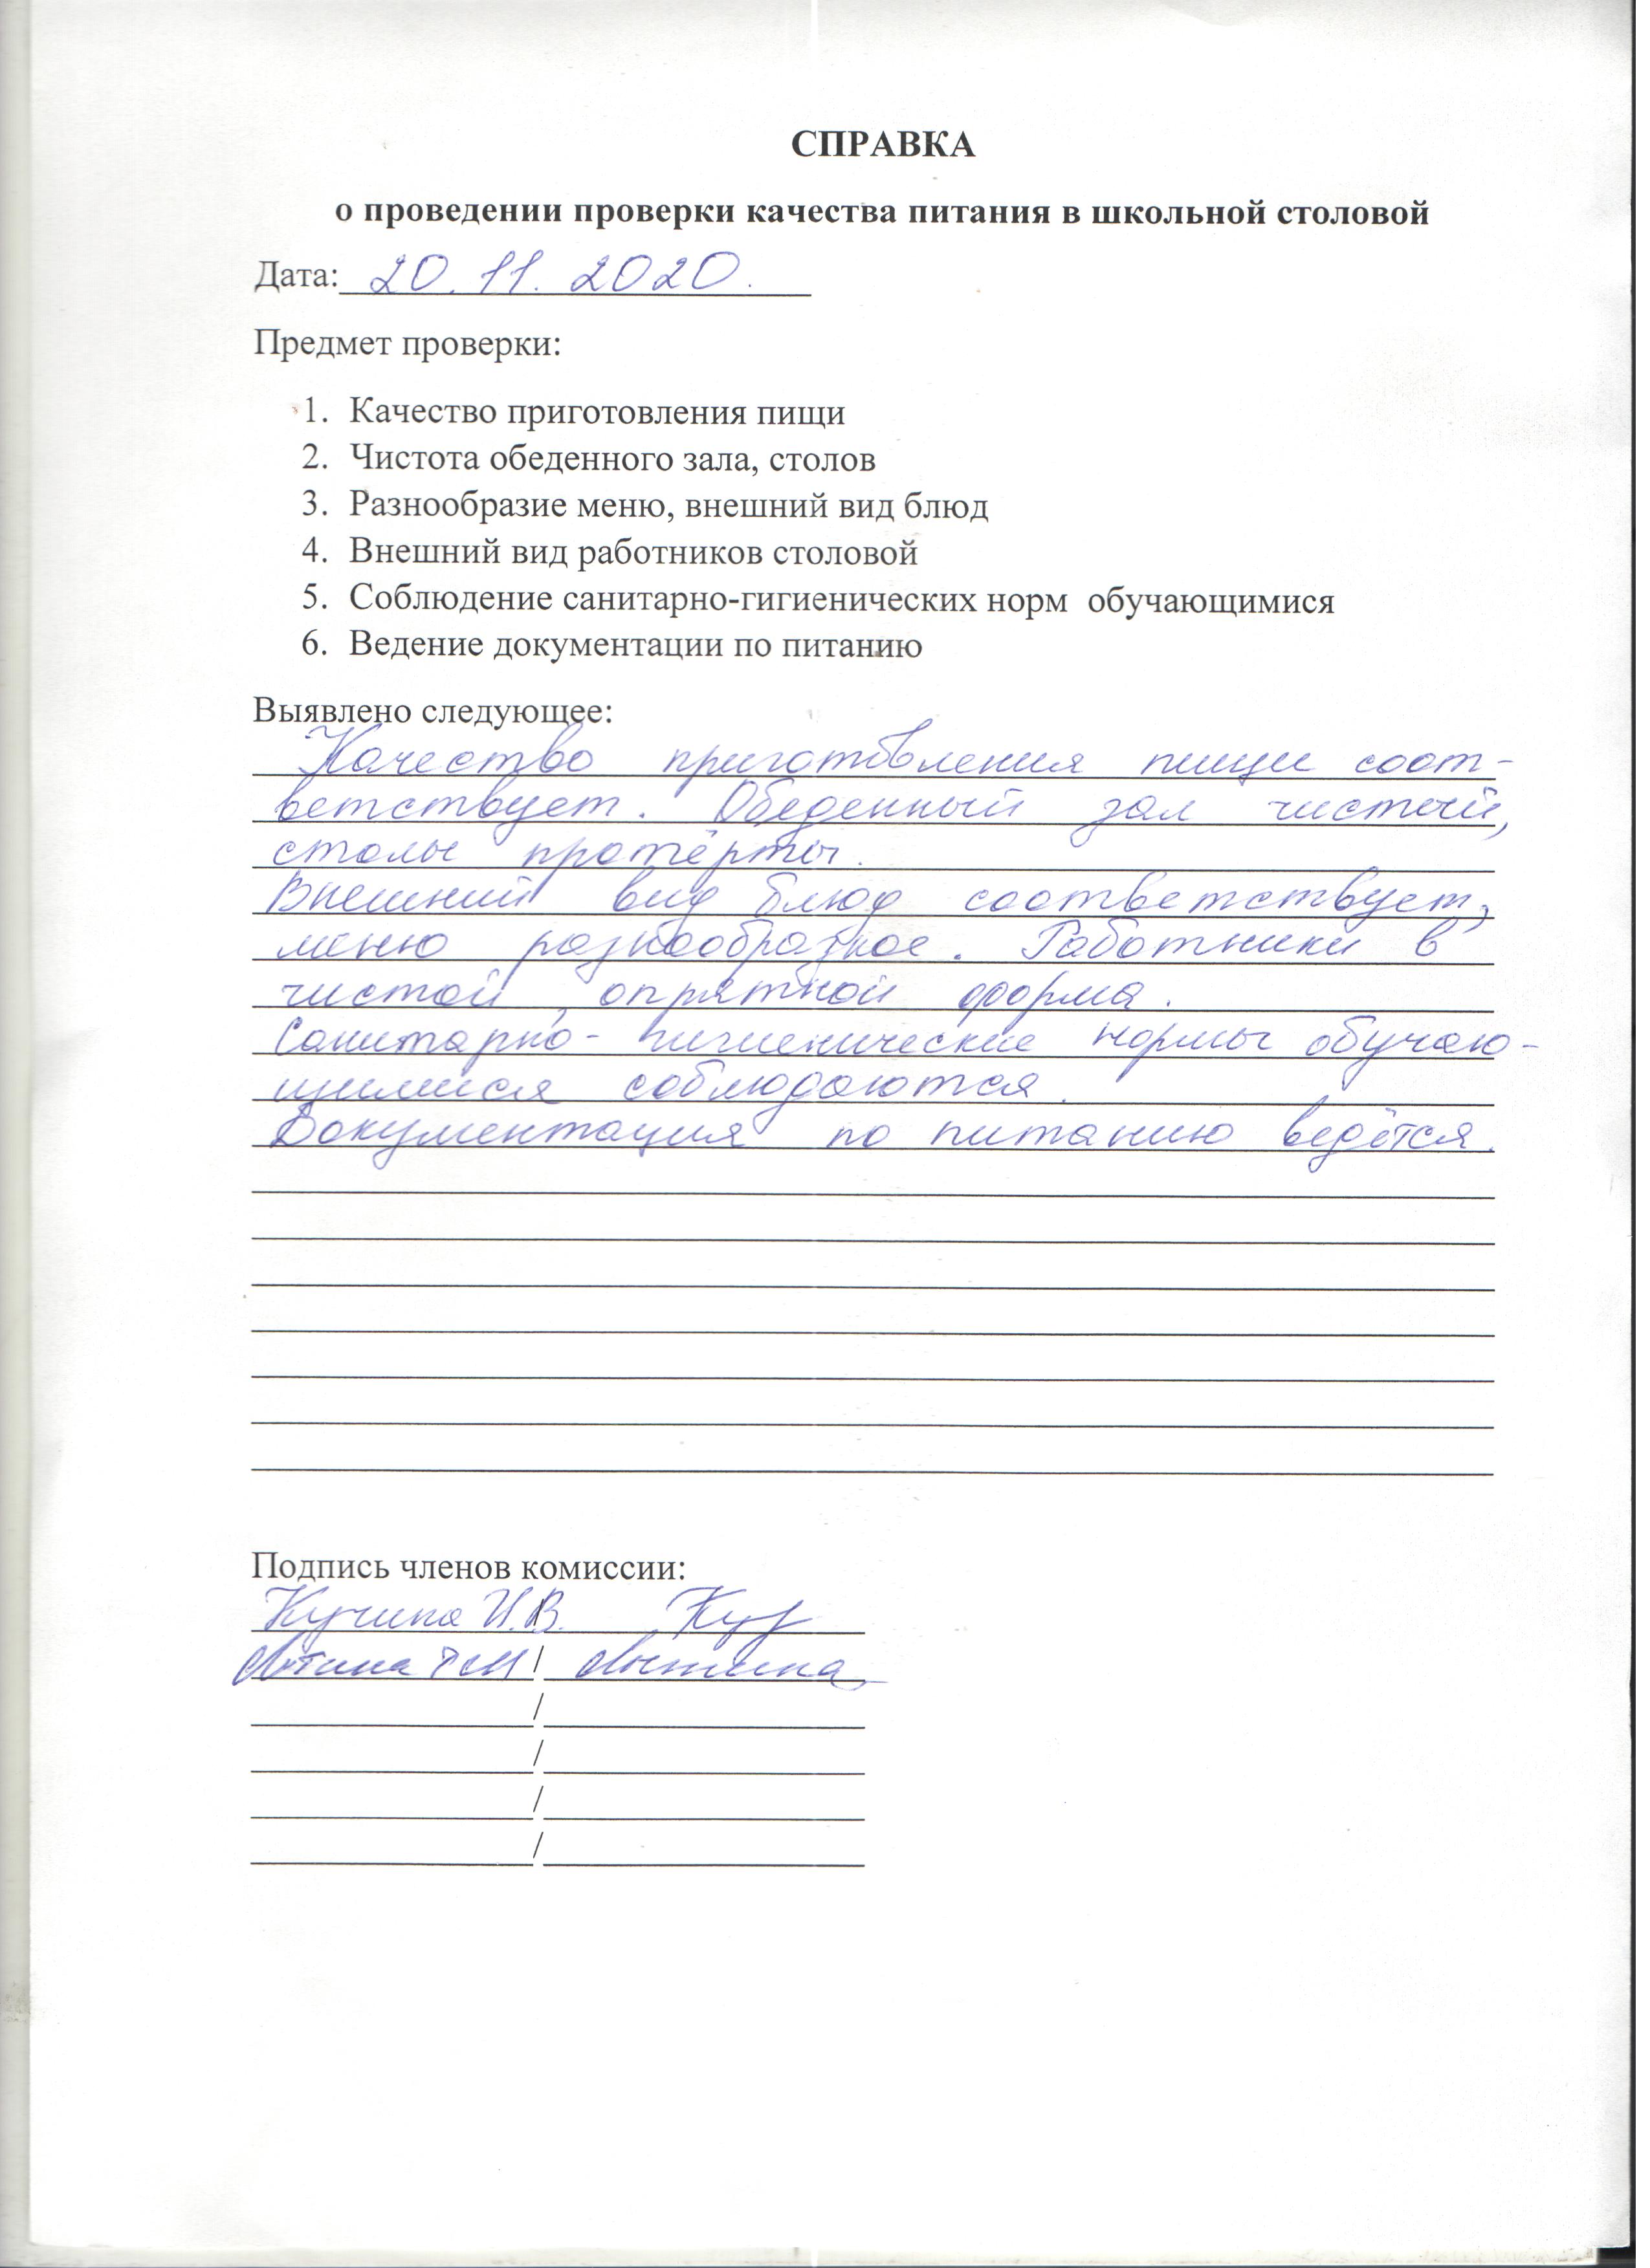 СПРАВКА
о проведении проверки качества питания в школьной столовой
Дата: 20.11.2020.
Предмет проверки:
1. Качество приготовления пищи
2. Чистота обеденного зала, столов
3. Разнообразие меню, внешний вид блюд
4. Внешний вид работников столовой
5. Соблюдение санитарно-гигиенических норм обучающимися
6. Ведение документации по питанию
Выявлено следующее:
Качество приготовления пищи соот-
ветствует. Обеденный зал чистый,
столы протёрты.
Внешний вид блюд соответствует,
меню разнообразное. Работники в
чистой, опрятной форма.
Санитарно-гигиенические нормы обучаю-
щимися соблюдаются.
Документация по питанию ведётся.
Подпись членов комиссии:
Кучина И.В.
/
/
/
/
/